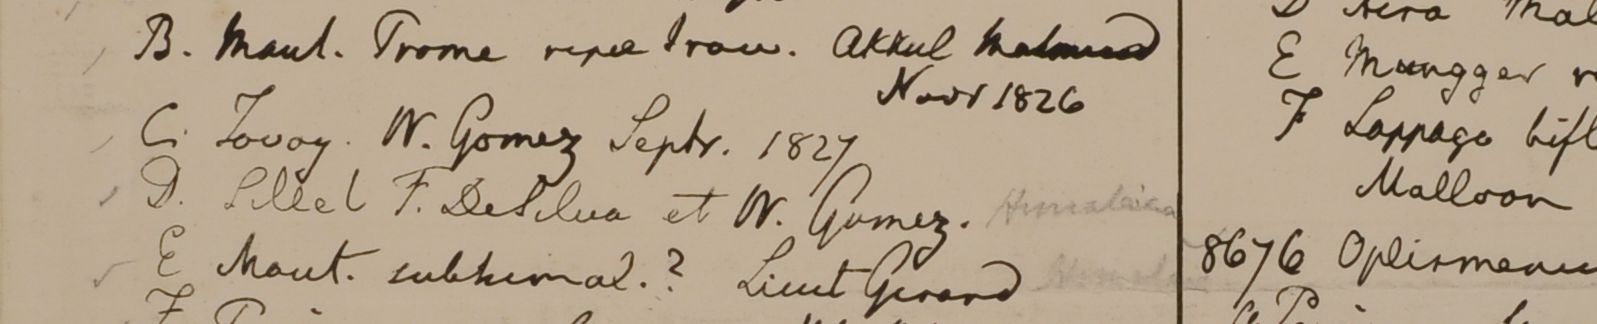 B. Mont. Trome repee Iraw. Akkul
Novr 1826
C. Tavoy. W. Gomez Septr. 1827
D. Sillet F. DeSilva et W. Gomez. Himalaica
E Mont. subhimal.? Lieut Gerard
E Mungger
F Lappago bifl
Malloon
8676 Oplismenu